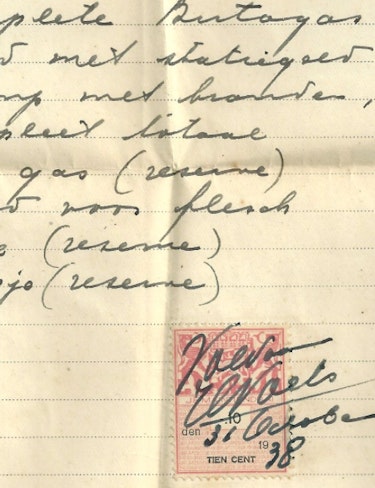 plete Butagas
d met statiegeld
mp met brander,
pleet totaal
gas (reserve)
d voor flesch
(reserve)
je (reserve)
Voldaan
.10
den 31 October
19 38
TIEN CENT